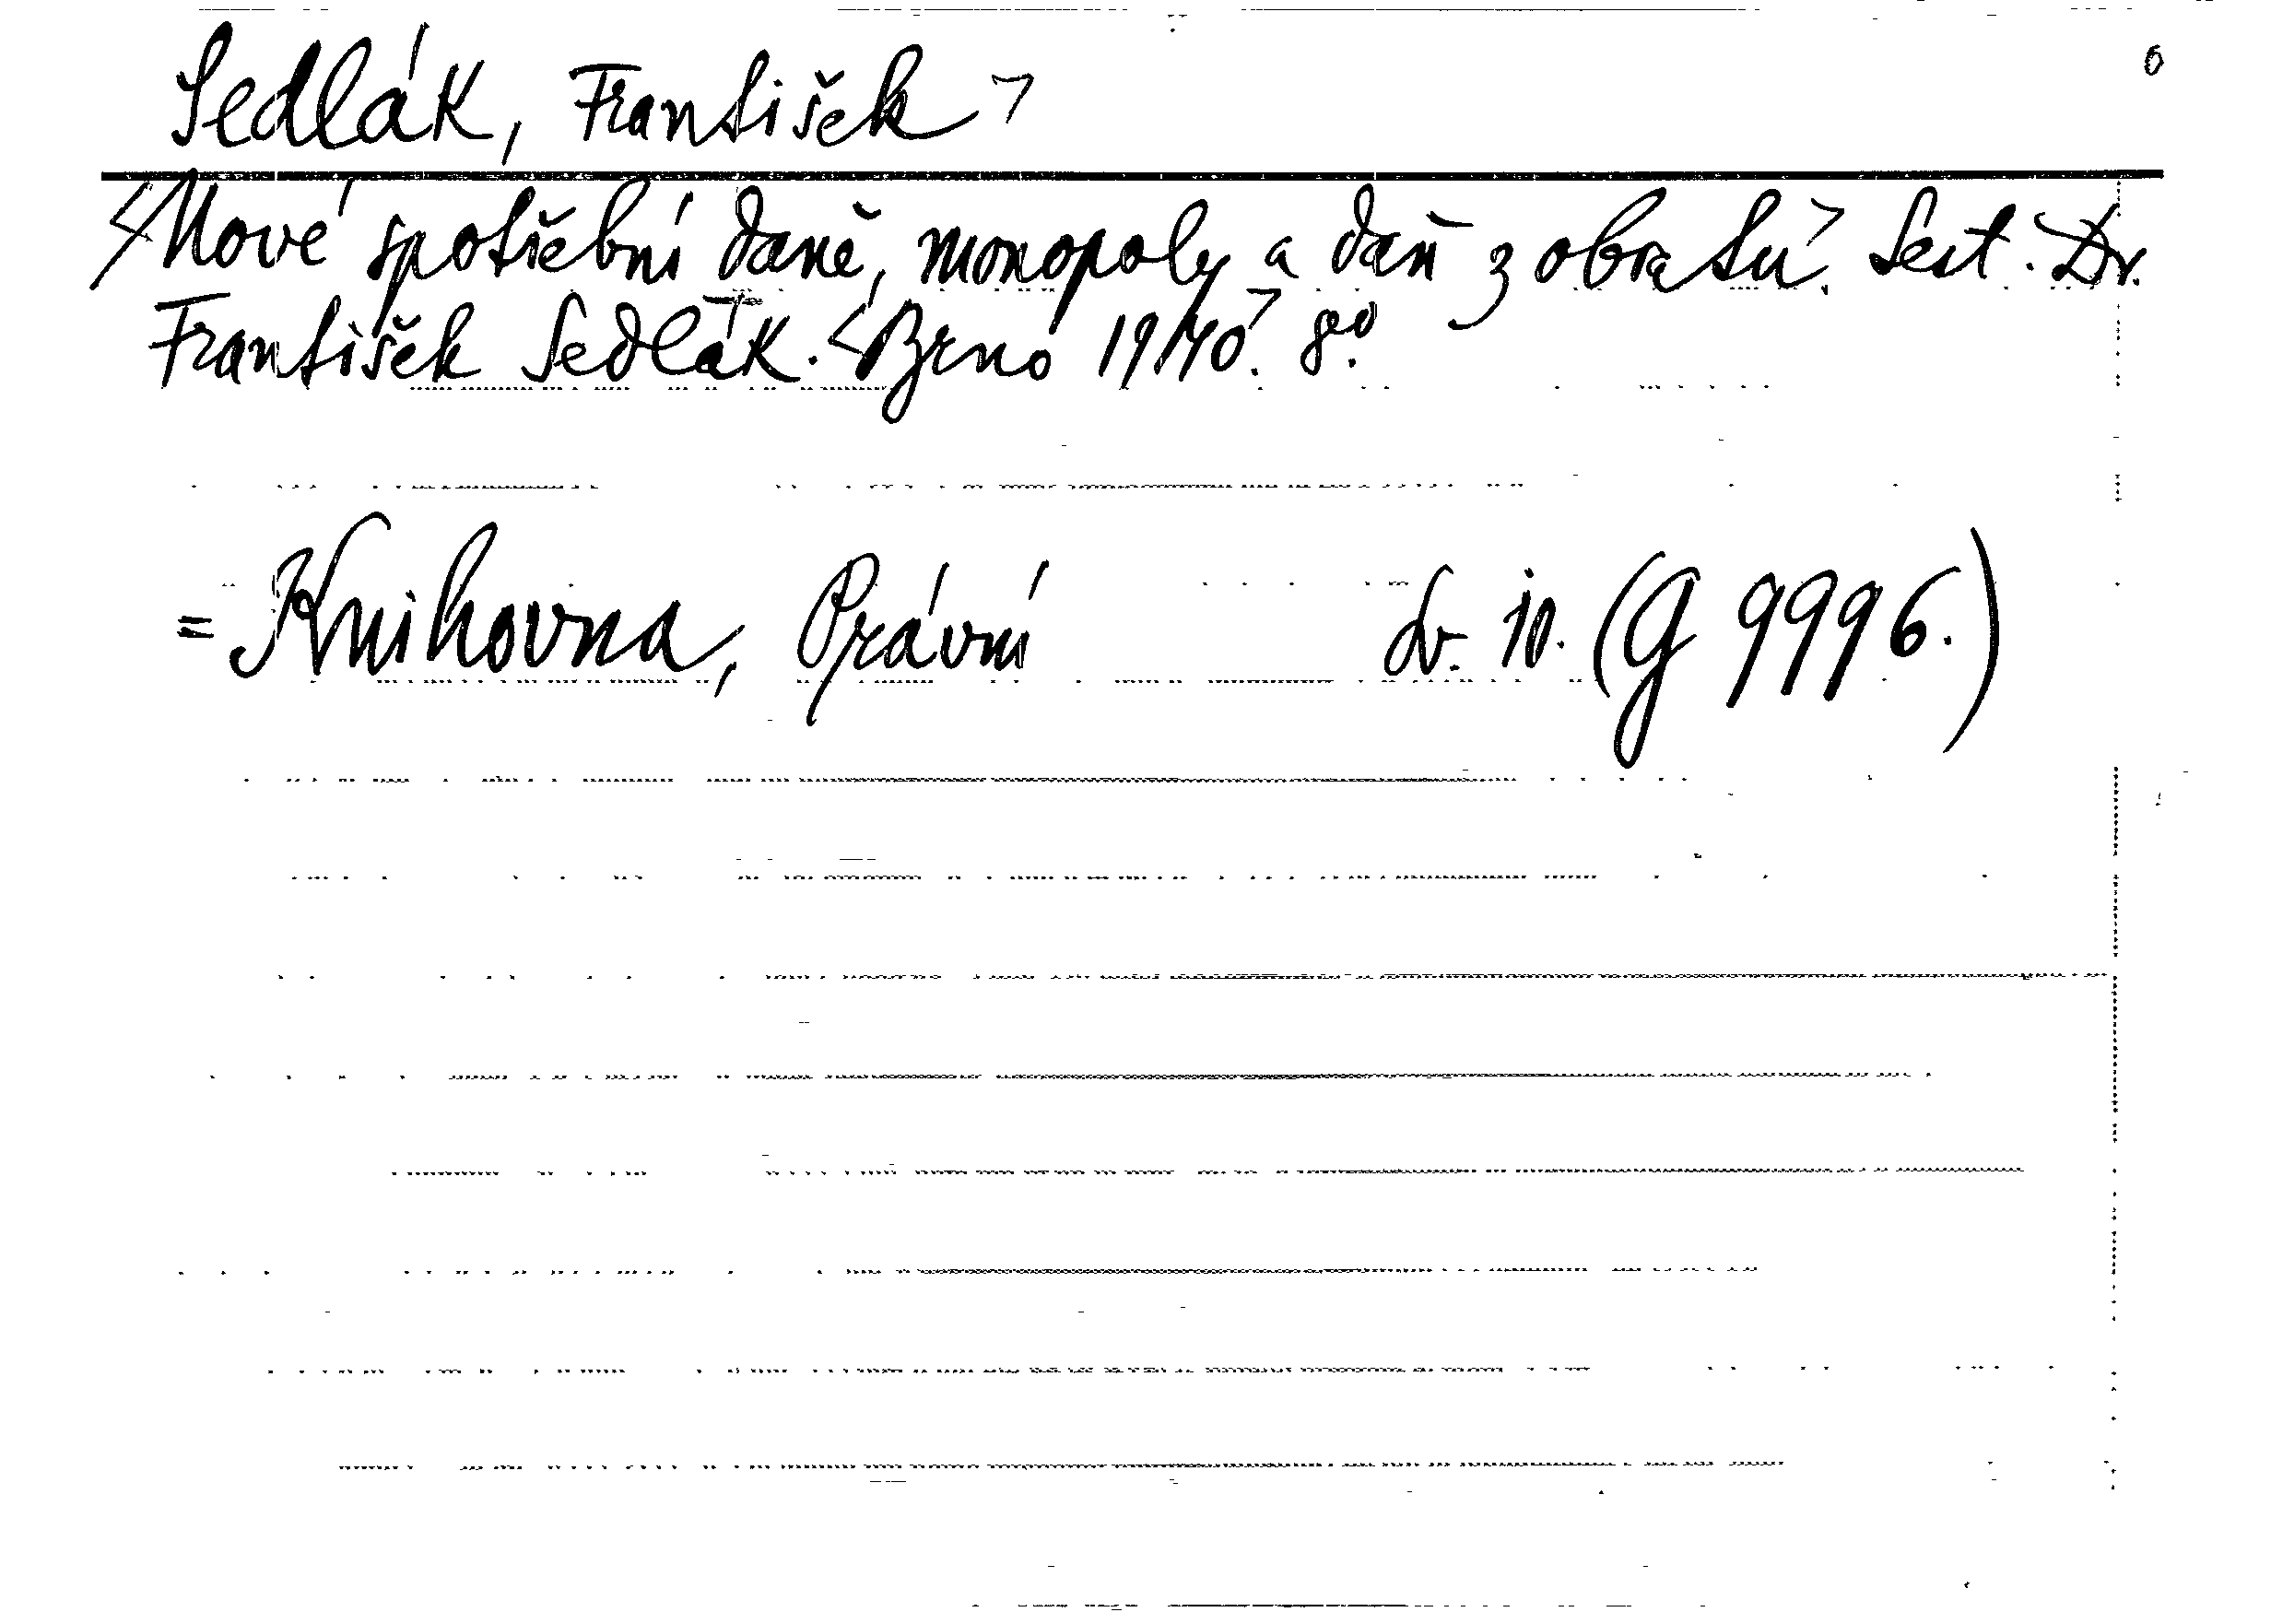 Sedlák, František
Nové spotřební daně, monopoly a daň z obratu. Sest. Dr.
František Sedlák. Brno 1940. 8°.
= Knihovna, Právní sv. 10. (G 9996.)